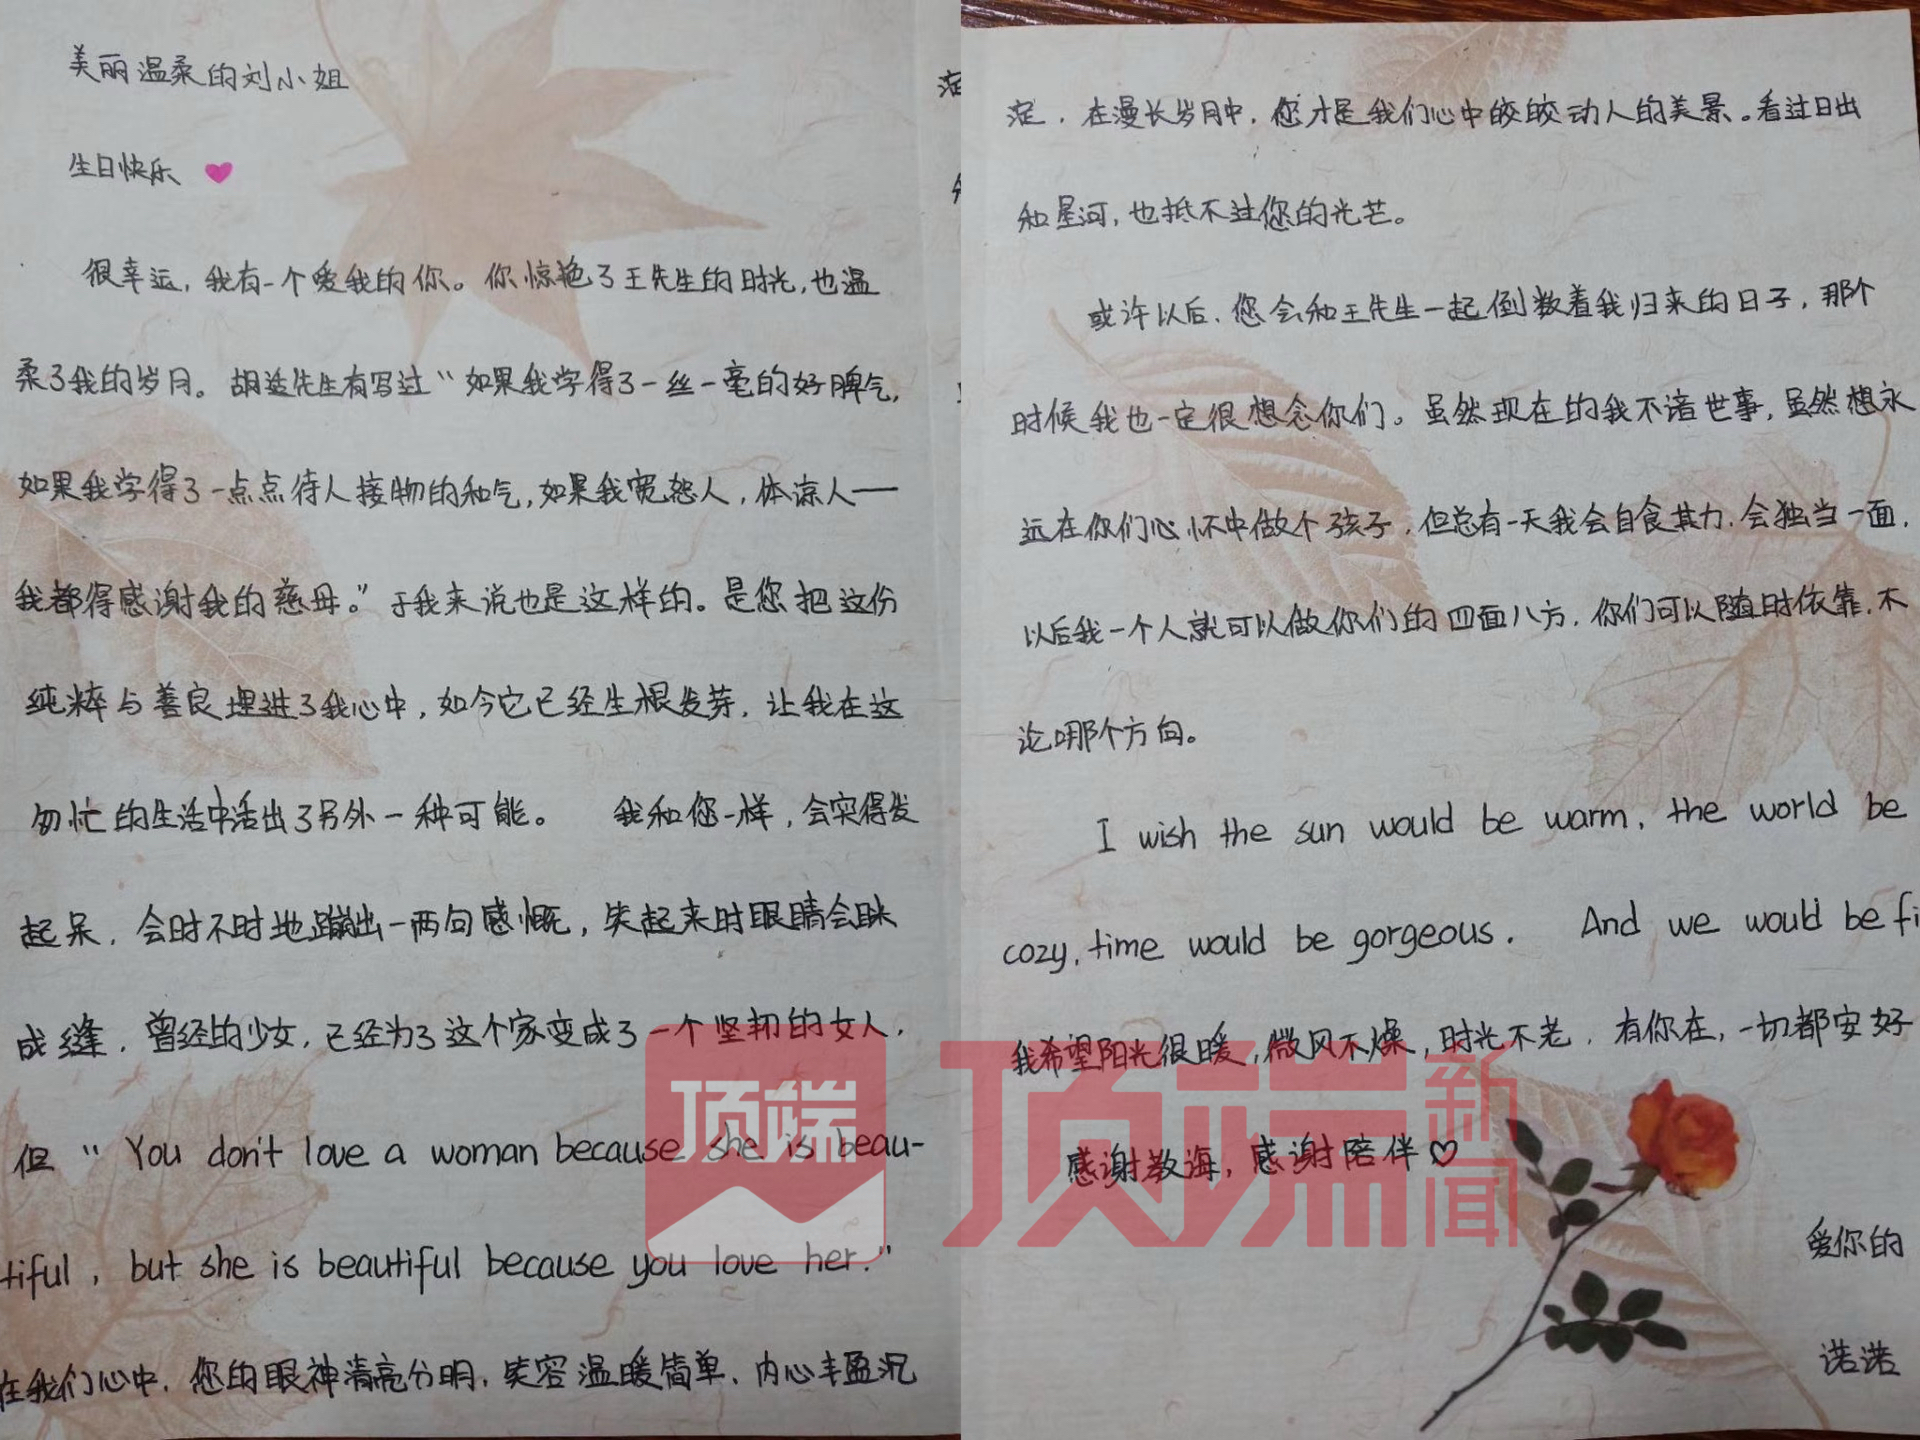 美丽温柔的刘小姐
生日快乐
很幸运，我有一个爱我的你。你惊艳了王先生的时光，也温
柔了我的岁月。胡适先生有写过“如果我学得了一丝一毫的好脾气，
如果我学得了一点点待人接物的和气，如果我宽恕人，体谅人——
我都得感谢我的慈母。”于我来说也是这样的。是您把这份
纯粹与善良埋进了我心中，如今它已经生根发芽，让我在这
匆忙的生活中活出了另外一种可能。 我和您一样，会突得发
起呆，会时不时地蹦出一两句感慨，笑起来时眼睛会眯
成缝，曾经的少女，已经为了这个家变成了一个坚韧的女人，
但“You don't love a woman because she is beau-
tiful, but she is beautiful because you love her."
在我们心中，您的眼神清亮分明，笑容温暖简单，内心丰盈沉
淀，在漫长岁月中，您才是我们心中皎皎动人的美景。看过日出
和星河，也抵不过您的光芒。
或许以后，您会和王先生一起倒数着我归来的日子，那个
时候我也一定很想念你们。虽然现在的我不谙世事，虽然想永
远在你们心怀中做个孩子，但总有一天我会自食其力，会独当一面，
以后我一个人就可以做你们的四面八方，你们可以随时依靠，不
论哪个方向。
I wish the sun would be warm, the world be
cozy, time would be gorgeous. And we would be fi
我希望阳光很暖，微风不燥，时光不老，有你在，一切都安好
感谢教诲，感谢陪伴♡
爱你的
诺诺
顶端
顶端新闻